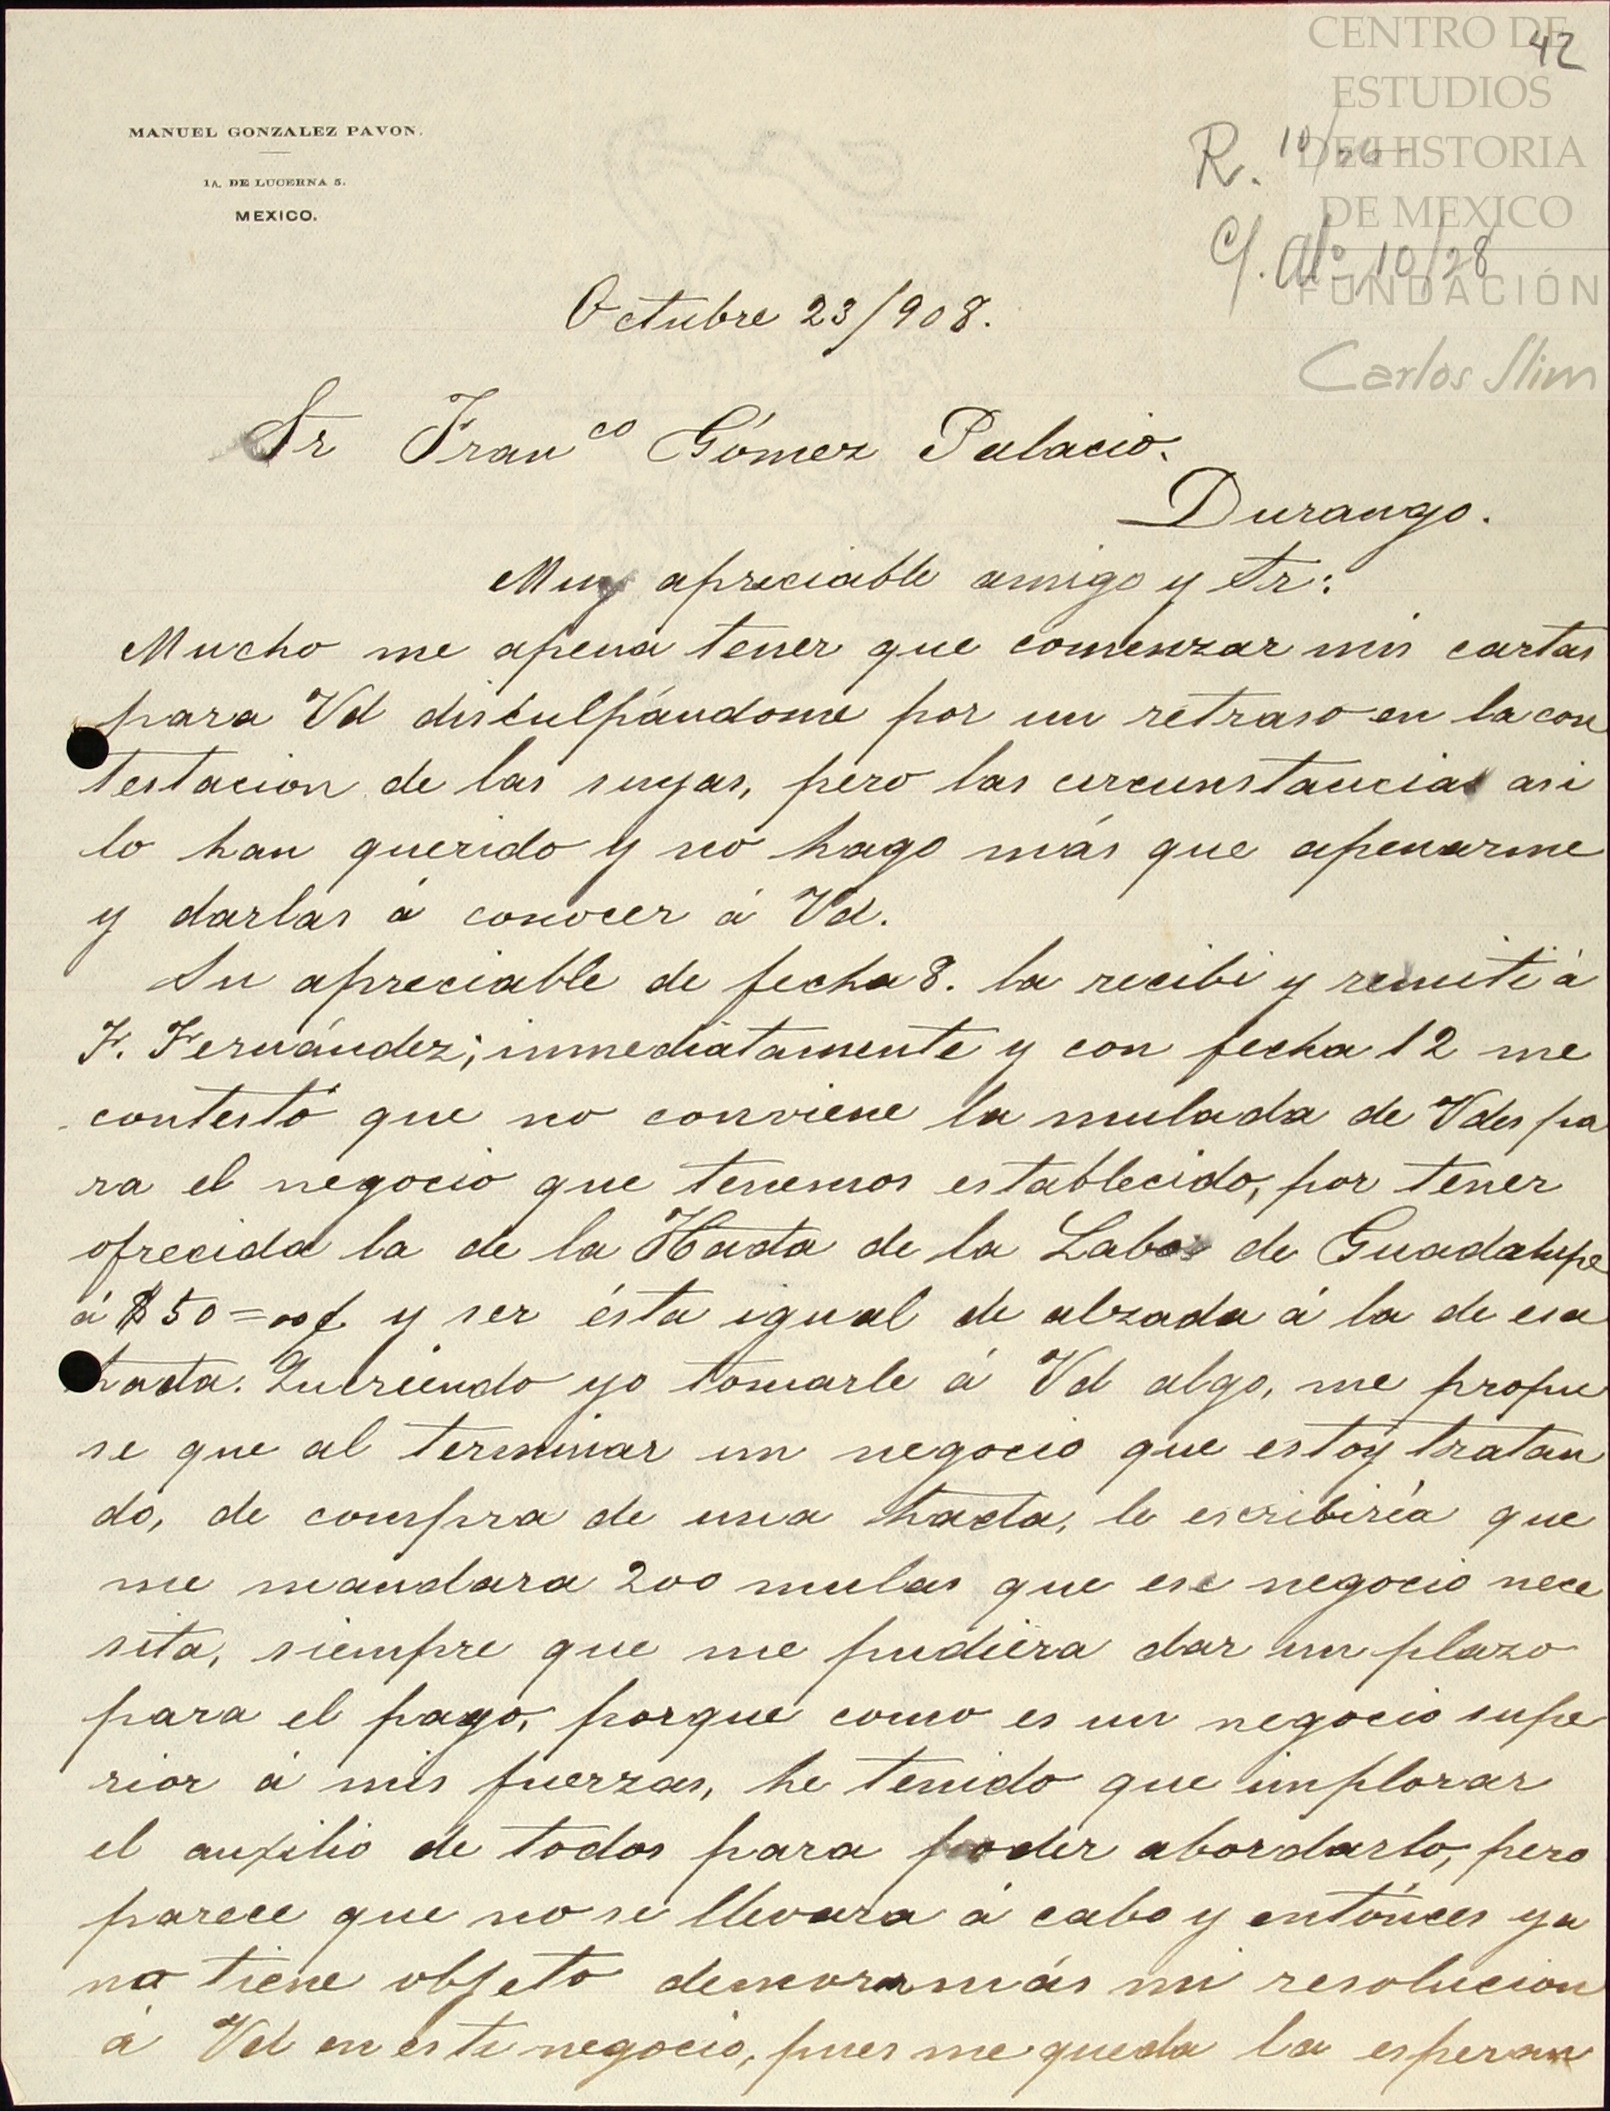 42
CENTRO DE
ESTUDIOS
DE HISTORIA
DE MEXICO
FUNDACIÓN
Carlos Slim
R. 10/26
C/. Alo 10/28
MANUEL GONZALEZ PAVON.
1A. DE LUCERNA 5.
MEXICO.
Octubre 23/908.
Sr Franco Gómez Palacio.
Durango.
Muy apreciable amigo y Sr:
Mucho me apena tener que comenzar mis cartas
para Vd disculpándome por un retraso en la con
testacion de las suyas, pero las circunstancias asi
lo han querido y no hago más que apenarme
y darlas á conocer á Vd.
Su apreciable de fecha 8. la recibi y remiti á
F. Fernández; inmediatamente y con fecha 12 me
contestó que no conviene la mulada de Vdes pa
ra el negocio que tenemos establecido, por tener
ofrecida la de la Hada de la Labor de Guadalupe
á $50=00¢ y ser ésta igual de alzada á la de esa
hada. Queriendo yo tomarle á Vd algo, me propu
se que al terminar un negocio que estoy tratan
do, de compra de una hada, le escribiría que
me mandara 200 mulas que ese negocio nece
sita, siempre que me pudiera dar un plazo
para el pago, porque como es un negocio supe
rior á mis fuerzas, he tenido que implorar
el auxilio de todos para poder abordarlo, pero
parece que no se llevara á cabo y entónces ya
no tiene objeto demorar más mi resolucion
á Vd en este negocio, pues me queda la esperan